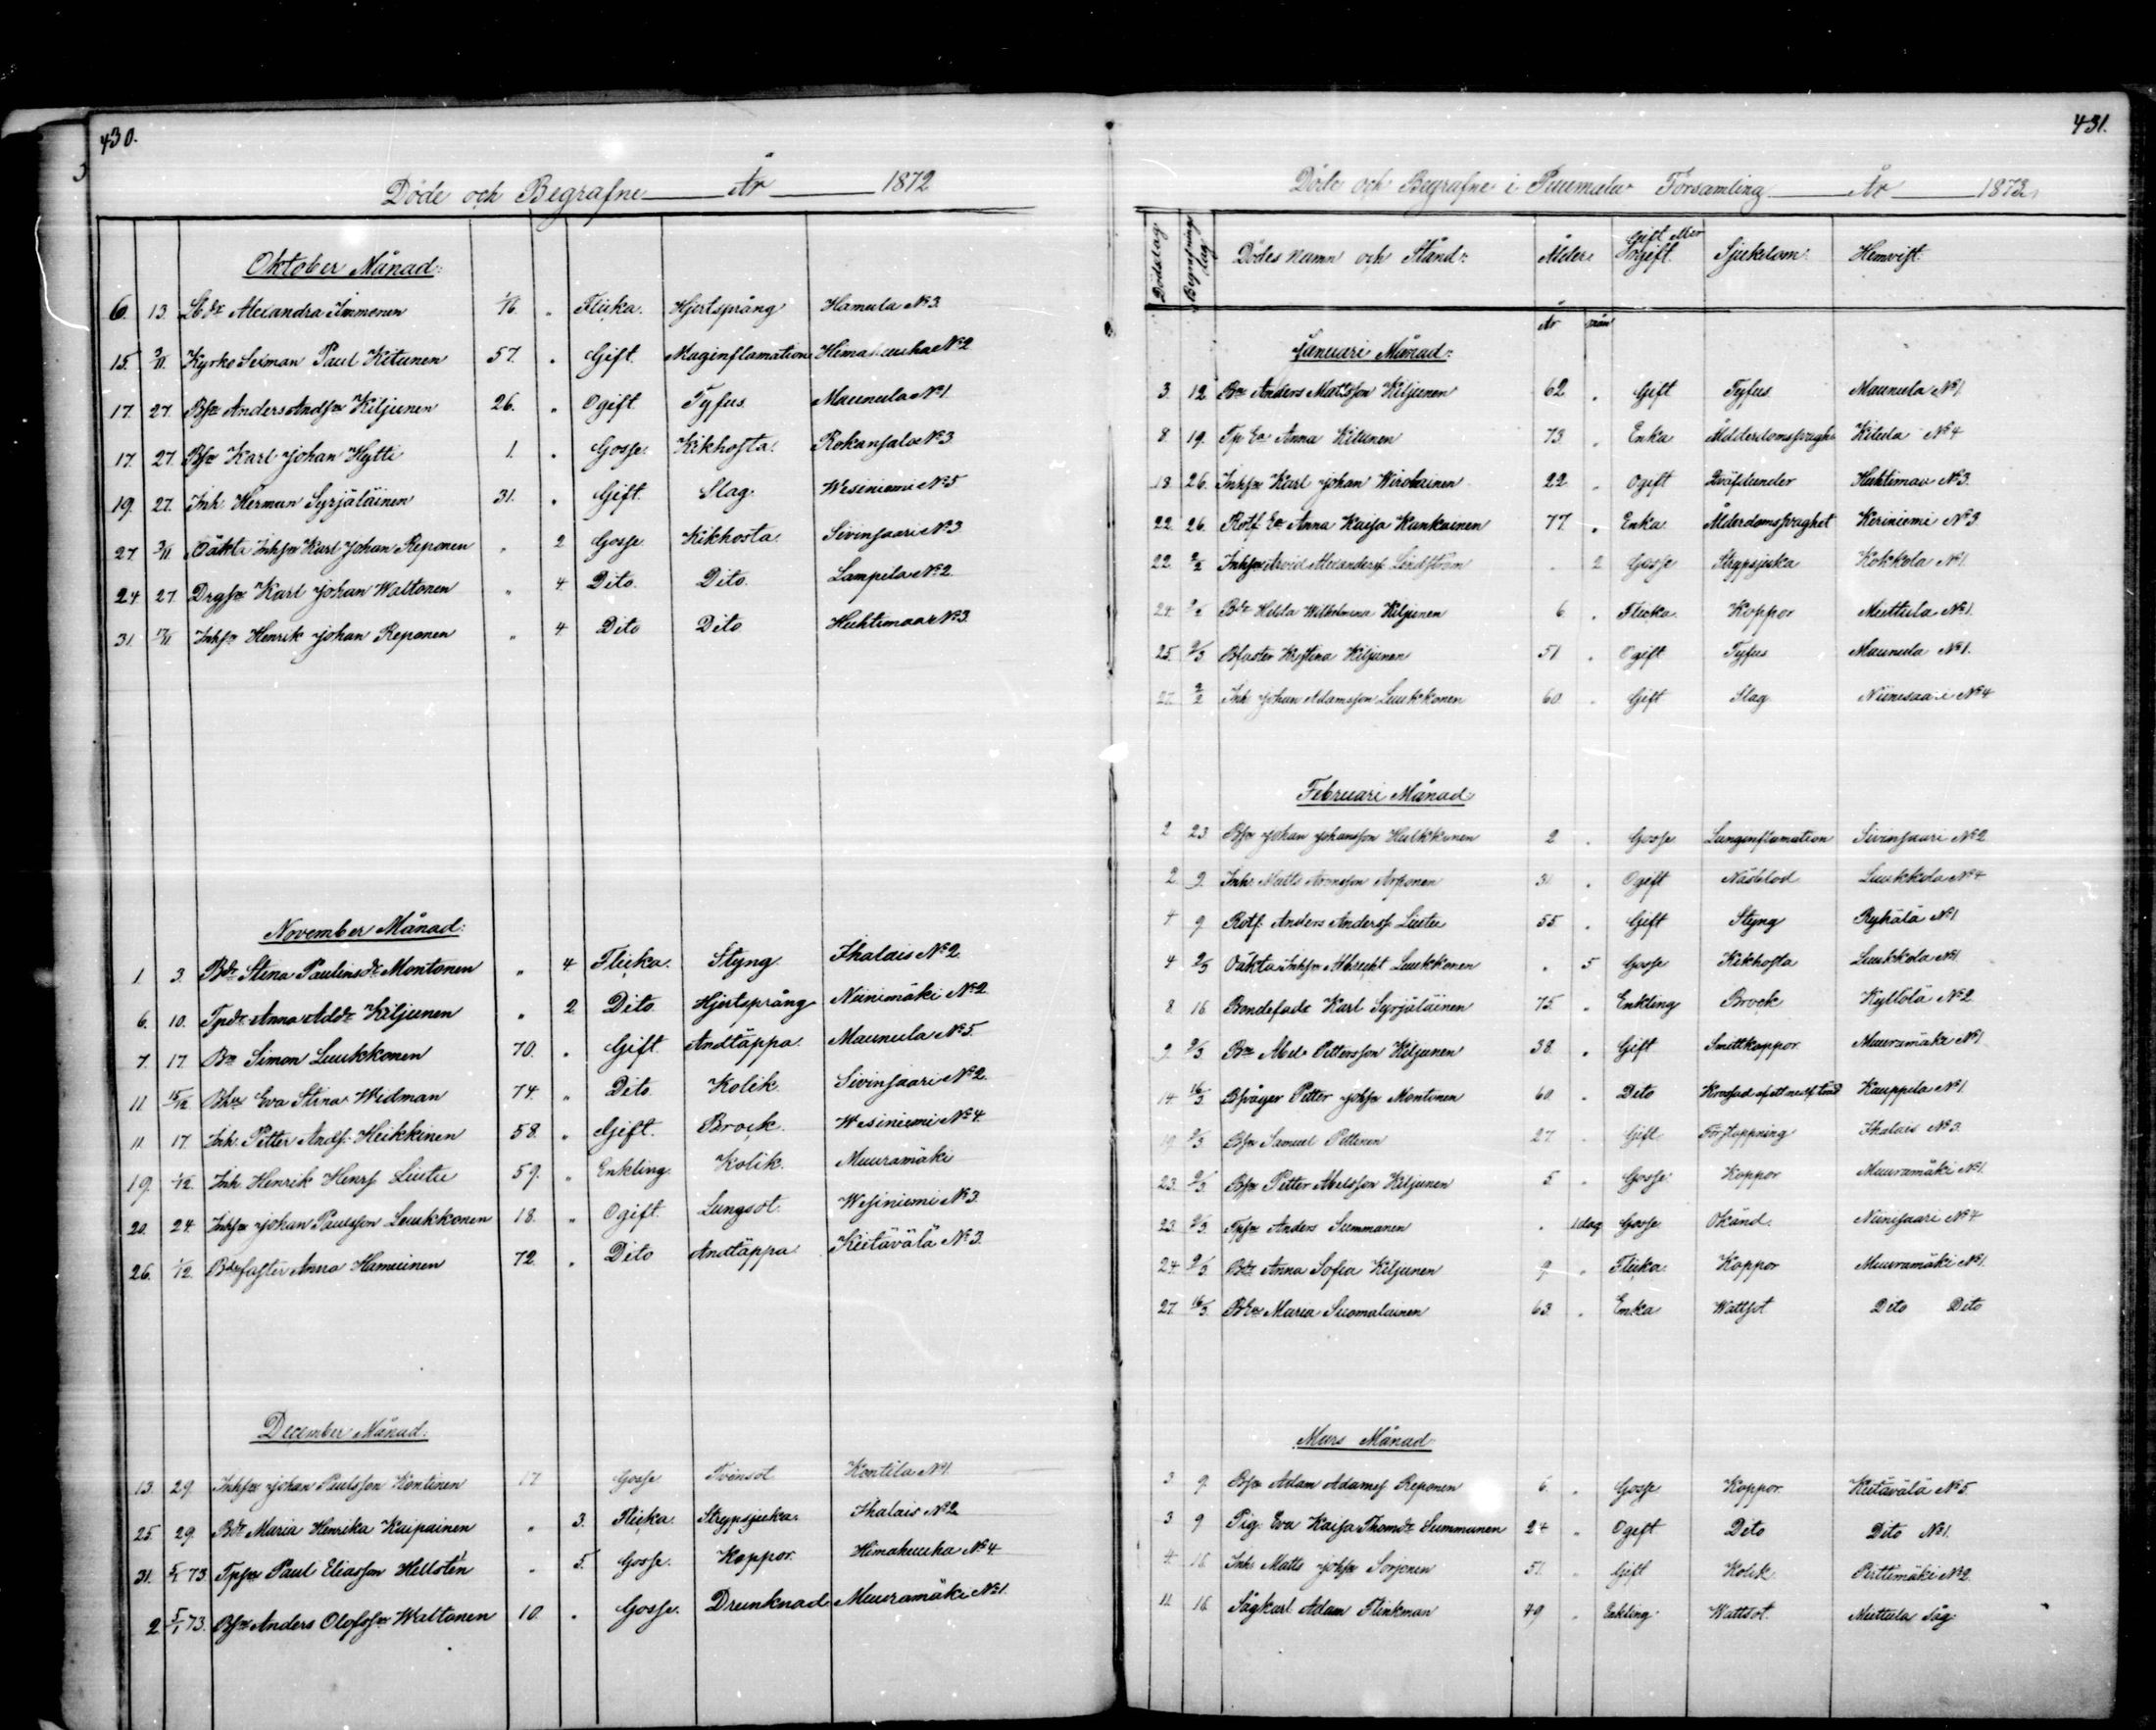 430.
Döde och Begrafne År 1872
Oktober Månad:
6. 13. Alexandra Immonen 1/16 " Flicka. Hjertsprång Hamula No 3.
15. 3/11. Kyrko Sexman Paul Kitunen 57. " Gift. Maginflamation No 2
17. 27. Bsn Anders Andsn Kiljunen 26. " Ogift. Tyfus. Maunula No 1.
17. 27. Bsn Karl Johan Hytti 1. " Gosse. Kikhosta. Rokansalo No 3
19. 27. Inh. Herman Syrjäläinen 31. " Gift. Slag. Wesiniemi No 5
27. 3/11. Oäkta Inhsn Karl Johan Reponen " 2 Gosse Kikhosta. Sivinsaari No 3
24. 27. Drgsn Karl Johan Waltonen " 4. Dito. Dito. Lampila No 2.
31. 17/11 Inhsn Henrik Johan Reponen " 4 Dito Dito Huhtimaa No 3.
November Månad:
1. 3. Bdr Stina Paulinsdr Montonen " 4. Flicka. Styng. Ihalais No 2.
6. 10. Tpdr Anna Addr Kiljunen " 2 Dito. Hjertsprång Niinimäki No 2.
7. 17. Bn Simon Luukkonen 70. " Gift. Andtäppa. Maunula No 5.
11. 15/12. Eva Stina Widman 74. " Dito. Kolik. Sivinsaari No 2.
11. 17. Inh. Petter Ands. Heikkinen 58. " Gift. Brock. Wesiniemi No 4.
19. 1/12. Inh. Henrik Henrs Liutu 59. " Enkling. Kolik. Muuramäki
20. 24. Inhsn Johan Paulsson Luukkonen 18. " Ogift. Lungsot. Wesiniemi No 3.
26. 1/12. faster Anna Hamuinen 72. " Dito Andtäppa. Kietävälä No 3.
December Månad.
13. 29. Inhsn Johan Paulsson Kontinen 17 Gosse Tvinsot Kontila No 1.
25. 29. Bdr Maria Henrika Kaipainen " 3. Flicka. Strypsjuka. Ihalais No 2
31. 5/1 73. Tpsn Paul Eliasson Hellstén " 5. Gosse. Koppor. Himahuuha No 4
2. 5/1 73. Bsn Anders Olofssn Waltonen 10. " Gosse. Drunknad Muuramäki No 1.
431.
Döde och Begrafne i Puumala Församling År 1873.
Dödsdag. Begrafnings dag. Dödes namn och Stånd. Ålder. Gift eller Ogift. Sjukdom. Hemvist.
år mån
Januari Månad:
3. 12. Bn Anders Matsson Kiljunen 62. " Gift Tyfus. Maunula No 1.
8. 19. Tp Ea Anna Kitunen 73. " Enka Kitula No 4
18. 26. Inhsn Karl Johan Wirolainen 22 " Ogift Huhtimaa No 3.
22. 26. Rotf. Ea Anna Kaisa Kankainen 77. " Enka. Ålderdomssvaghet Keriniemi No 3
22. 2/2 Inhsn Arvid Alexanders. Lindström " 2 Gosse Strypsjuka Kokkola No 1.
24. Bdr Hilda Wilhelmina Kiljunen 6. " Flicka. Koppor Miettula No 1.
25. 2/3. Bfaster Kristina Kiljunen 51 " Ogift Tyfus Maunula No 1.
27. 2/2 Inh Johan Adamsson Luukkonen 60. " Gift Slag Niinisaari No 4
Februari Månad:
2 23 Bsn Johan Johansson Hulkkonen 2 " Gosse Lunginflamation Sivinsaari No 2
2. 9. Inh. Matts Aronsson Arponen 31 " Ogift Näsblod Luukkola No 4
4 9 Rotf. Anders Anders. Liutu 55. " Gift Styng Ryhälä No 1
4 2/3 Oäkta Inhsn Albrecht Luukkonen " 5 Gosse Kikhosta Luukkola No 1.
8. 16 Bondefadr Karl Syrjäläinen 75. " Enkling Brock Kyllölä No 2
9. 2/3 Bn Abel Pettersson Kiljunen 38. " Gift Smittkoppor Muuramäki No 1
14. 16/3. Bsvåger Petter Johsn Montonen 60. " Dito Krossad af ett Kauppila No 1.
19 2/3 Bsn Samuel Pettinen 27. " Gift Förstoppning Ihalais No 3.
23. 2/3. Bsn Petter Abelsson Kiljunen 5. " Gosse. Koppor Muuramäki No 1.
23. 2/3. Tpsn Anders Summanen " 1 dag Gosse Okänd. Niinisaari No 4
24. 2/3 Bdr Anna Sofia Kiljunen 9. " Flicka Koppor Muuramäki No 1.
27. 16/3. Maria Suomalainen 63. " Enka Wattsot Dito Dito
Mars Månad:
3. 9. Bsn Adam Adamss Reponen 6. " Gosse Koppor. Kietävälä No 5.
3 9 Pig. Eva Kaisa Thomdr Summanen 24 " Ogift Dito Dito No 1.
4. 16 Inh. Matts Johsn Sorjonen 51. " Gift Kolik Pirttimäki No 2.
11. 16. Sågkarl Adam Flinkman 49 " Enkling. Wattsot. Miettula Såg